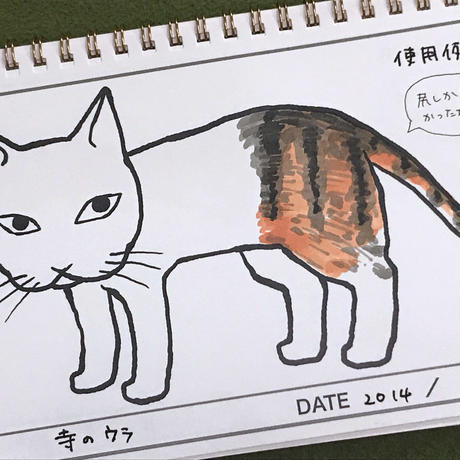 使用例
尻しか
かった
DATE 2014 /
寺のウラ